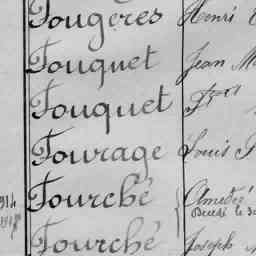 Fougères Henri
Fouquet Jean M
Fouquet Fçois
Fourage Louis
Fourché Amédée
Décédé le
Fourché Joseph